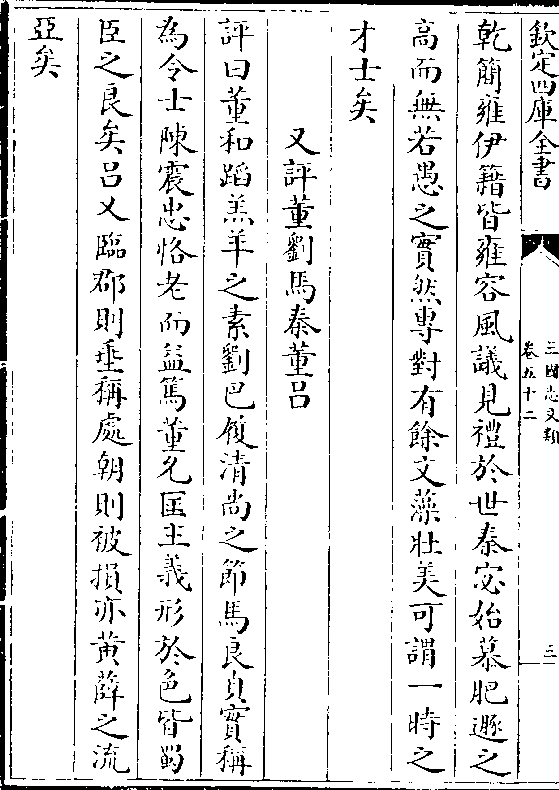 欽定四庫全書
三國志文類
卷五十二
三
乾簡雍伊籍皆雍容風議見禮於世秦宓始慕肥遯之
高而無若愚之實然專對有餘文藻壯美可謂一時之
才士矣
又評董劉馬秦董呂
評曰董和蹈羔羊之素劉巴履清尚之節馬良貞實稱
為令士陳震忠恪老而益篤董允匡主義形於色皆蜀
臣之良矣呂乂臨郡則垂稱處朝則被損亦黃薛之流
亞矣